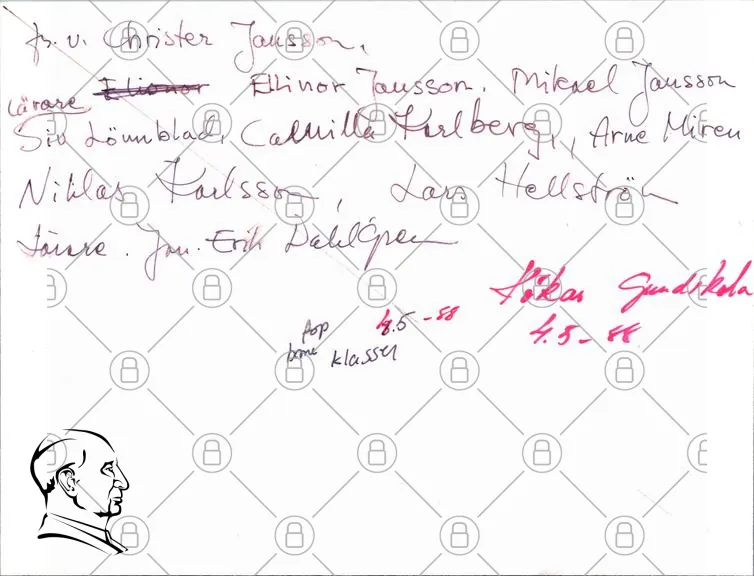 fr. v. Christer Jansson,
Ellinor Jansson. Mikael Jansson
Lärare
Siv Lönnblad, Camilla Karlberg, Arne Miren
Niklas Karlsson, Lars Hellström
Lärare. Jan. Erik Dahlgren
Hökar
4.5 - 88
4.5 - 88
klassen